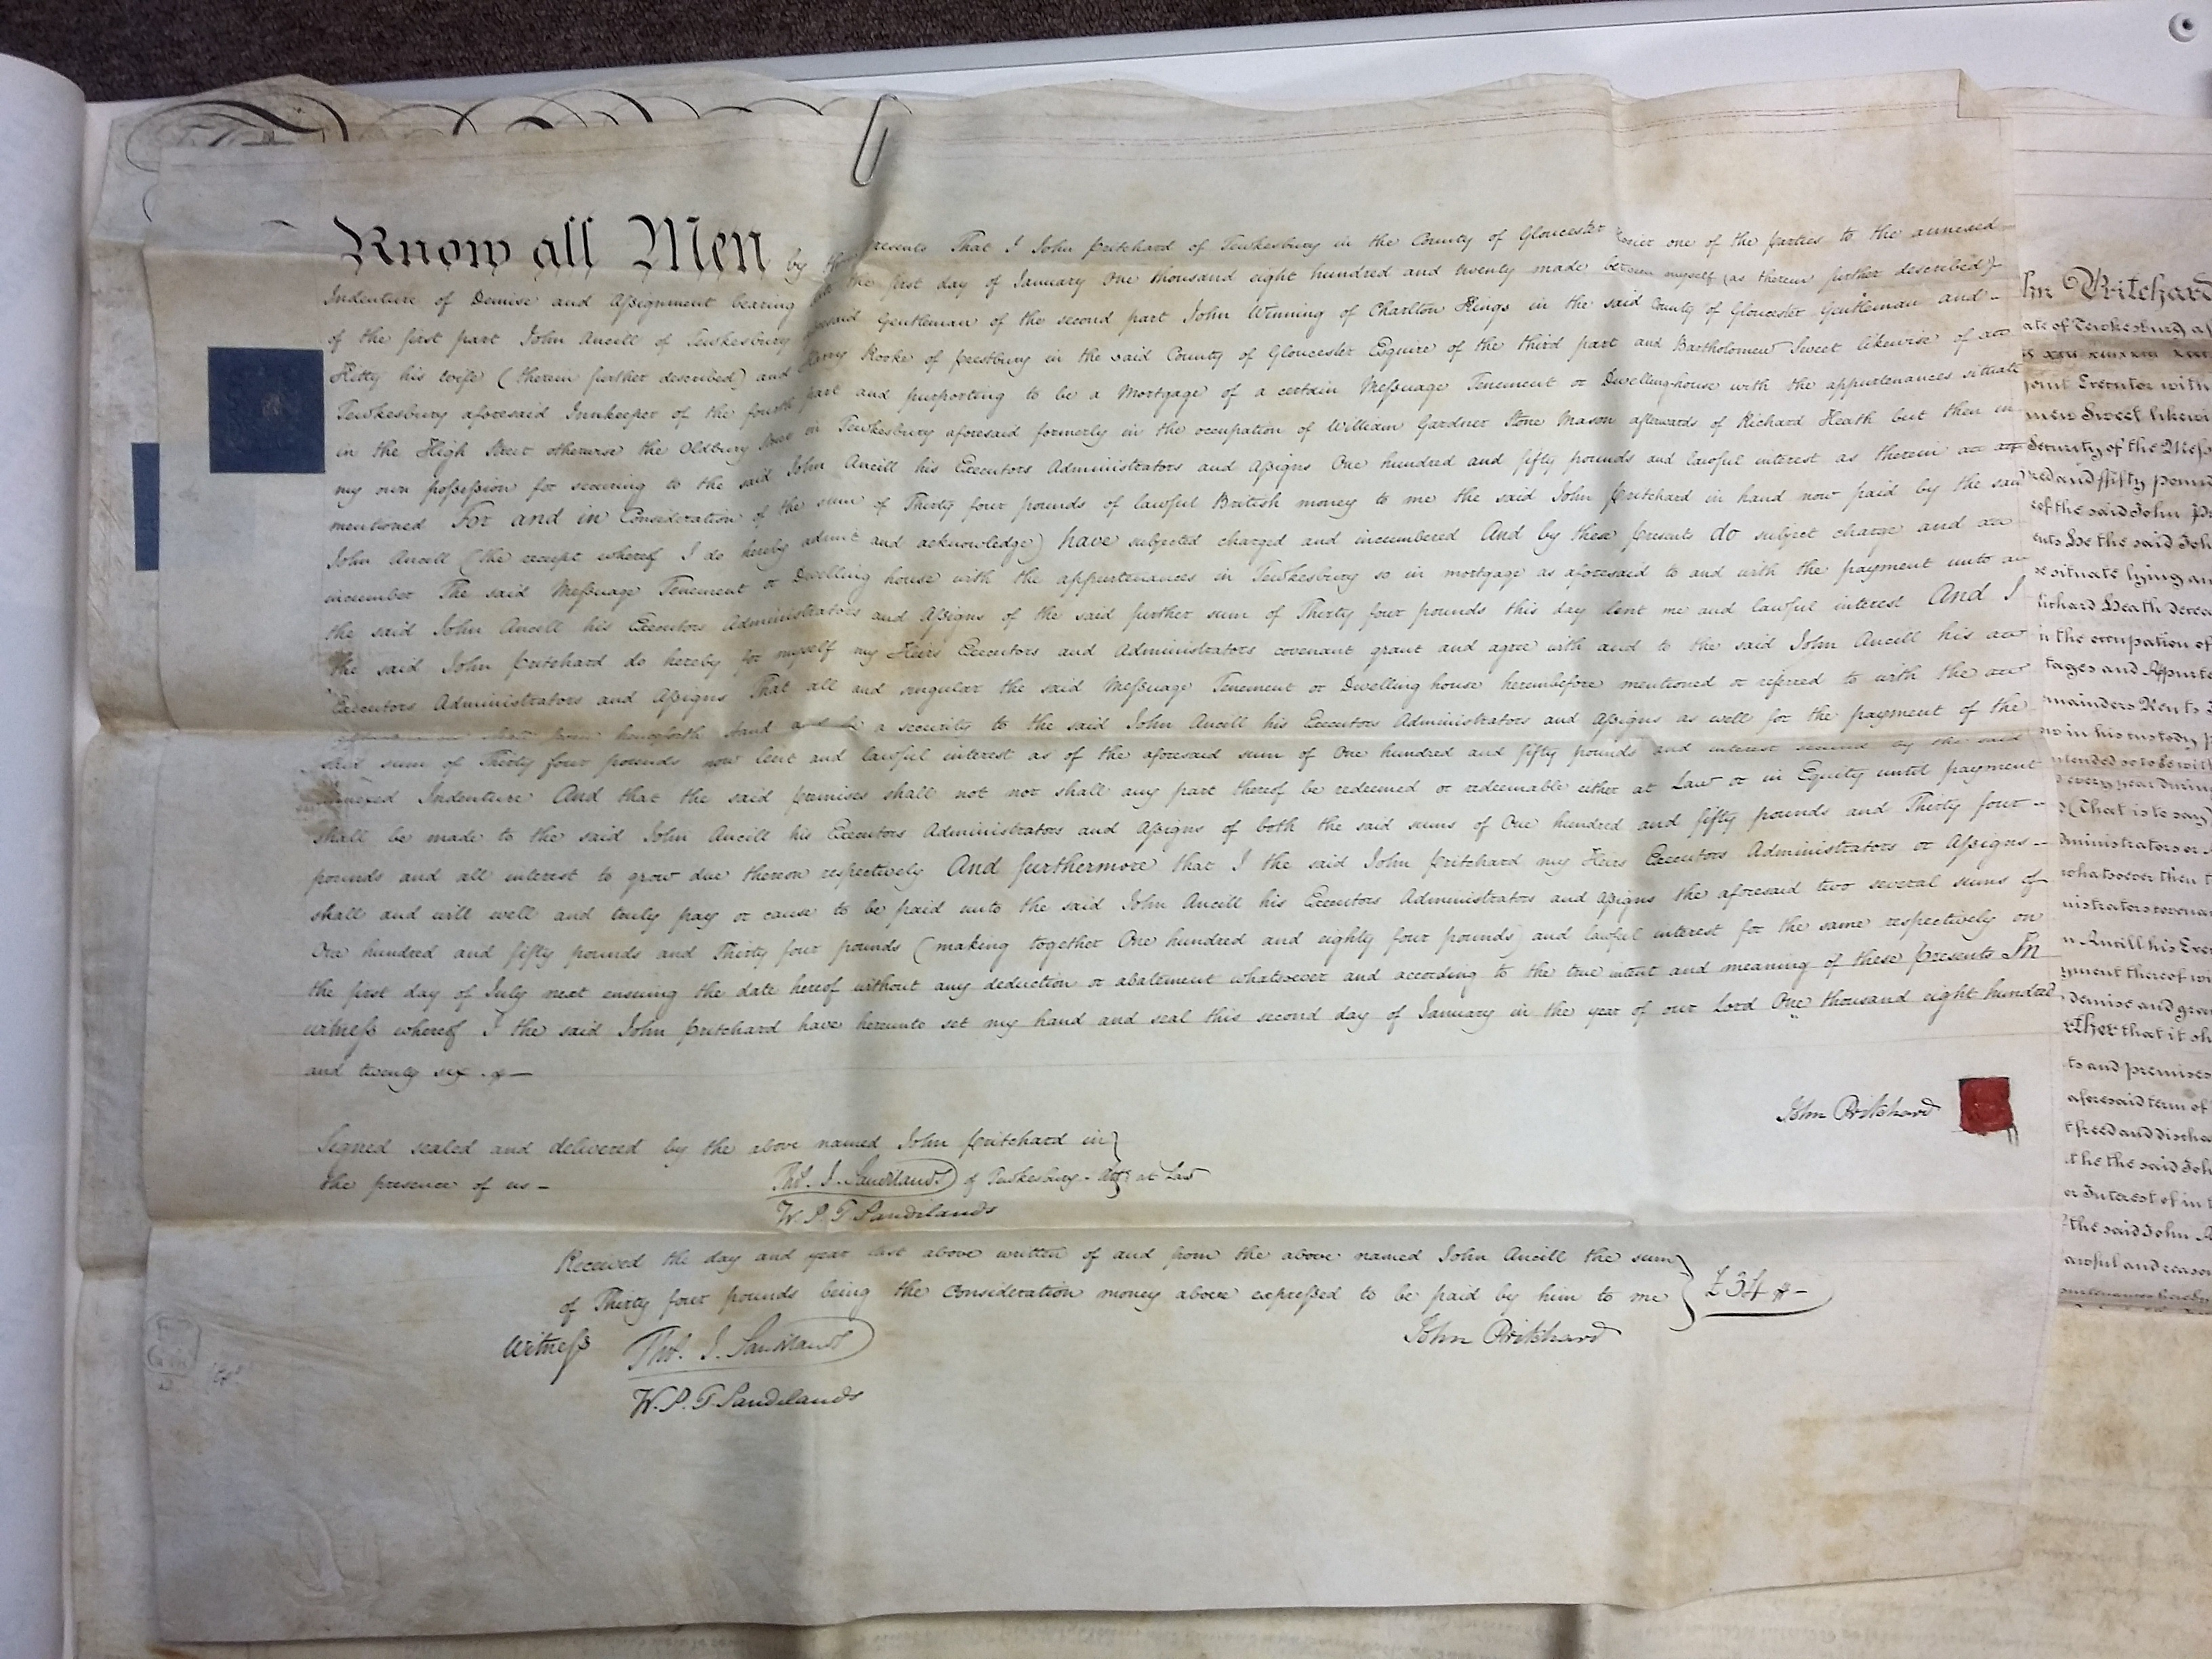 Know all Men by presents That I John Pritchard of Tewkesbury in the County of Gloucester one of the parties to the annexed
Indenture of Demise and Assignment bearing the first day of January One thousand eight hundred and twenty made between myself (as therein further described)
of the first part John Ancill of Tewkesbury aforesaid Gentleman of the second part John Winning of Charlton Kings in the said County of Gloucester Gentleman and
Hetty his wife (therein further described) and Harry Rooke of Prestbury in the said County of Gloucester Esquire of the third part and Bartholomew Sweet likewise of
Tewkesbury aforesaid Innkeeper of the fourth part and purporting to be a Mortgage of a certain Messuage Tenement or Dwelling-house with the appurtenances situate
in the High Street otherwise the Oldbury in Tewkesbury aforesaid formerly in the occupation of William Gardner Stone Mason afterwards of Richard Heath but then in
my own possession for securing to the said John Ancill his Executors Administrators and Assigns One hundred and fifty pounds and lawful interest as therein
mentioned For and in Consideration of the sum of Thirty four pounds of lawful British money to me the said John Pritchard in hand now paid by the said
John Ancill (the receipt whereof I do hereby admit and acknowledge) have subjected charged and incumbered And by these presents do subject charge and
incumber The said Messuage Tenement or Dwelling house with the appurtenances in Tewkesbury so in mortgage as aforesaid to and with the payment unto
the said John Ancill his Executors Administrators and Assigns of the said further sum of Thirty four pounds this day lent me and lawful interest And I
the said John Pritchard do hereby for myself my Heirs Executors and Administrators covenant grant and agree with and to the said John Ancill his
Executors Administrators and Assigns That all and singular the said Messuage Tenement or Dwelling house hereinbefore mentioned or referred to with the
henceforth stand and be a security to the said John Ancill his Executors Administrators and Assigns as well for the payment of the
said sum of Thirty four pounds now lent and lawful interest as of the aforesaid sum of One hundred and fifty pounds and interest secured by the said
annexed Indenture And that the said premises shall not nor shall any part thereof be redeemed or redeemable either at Law or in Equity until payment
shall be made to the said John Ancill his Executors Administrators and Assigns of both the said sums of One hundred and fifty pounds and Thirty four
pounds and all interest to grow due thereon respectively And furthermore that I the said John Pritchard my Heirs Executors Administrators or Assigns
shall and will well and truly pay or cause to be paid unto the said John Ancill his Executors Administrators and Assigns the aforesaid two several sums of
One hundred and fifty pounds and Thirty four pounds (making together One hundred and eighty four pounds) and lawful interest for the same respectively on
the first day of July next ensuing the date hereof without any deduction or abatement whatsoever and according to the true intent and meaning of these Presents In
witness whereof I the said John Pritchard have hereunto set my hand and seal this second day of January in the year of our Lord One thousand eight hundred
and twenty six
John Pritchard
Signed sealed and delivered by the above named John Pritchard in
the presence of us
Thos. J. Sandilands of Tewkesbury Atty at Law
W. P. T. Sandilands
Received the day and year last above written of and from the above named John Ancill the sum
of Thirty four pounds being the Consideration money above expressed to be paid by him to me £34
John Pritchard
Witness Thos. J. Sandilands
W. P. T. Sandilands
Pritchard
ate of Tewkesbury
joint Executor with
Sweet likewi
Security of the Mess
red and fifty pounds
of the said John Pr
ents he the said Joh
situate lying an
Richard Heath decea
in the occupation of
tages and Appurte
mainders Rents
in his custody
tended so to be with
every year during
(That is to say)
Administrators or
whatsoever then
nistrators covenan
Ancill his Exec
yment thereof wi
demise and gran
rther that it sh
ts and premises
aforesaid term of
freed and discha
the the said Joh
or Interest of in
the said John A
awful and reason